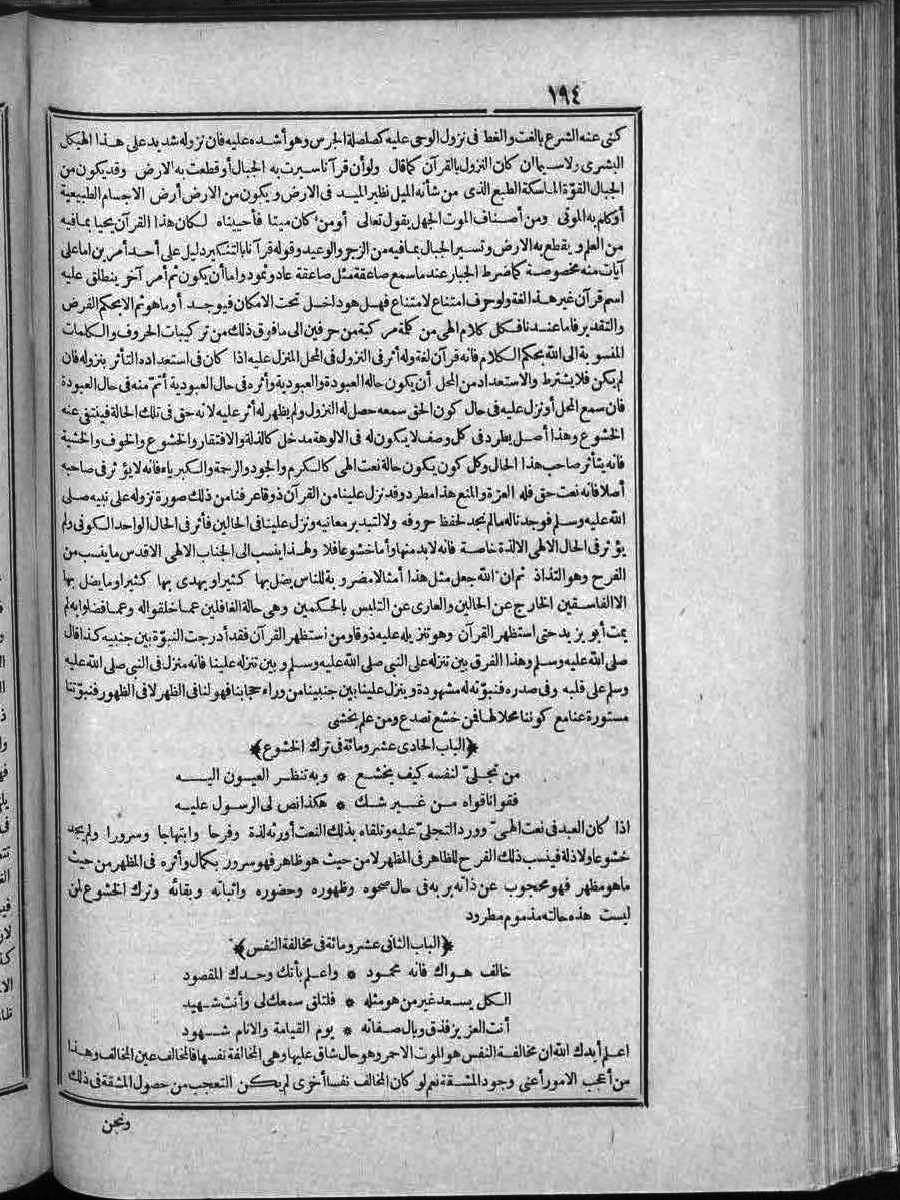 ١٩٤
كنى عنه الشرع بالغت والغط فى نزول الوحى عليه كصلصلة الجرس وهو أشده عليه فان نزوله شديد على هذا الهيكل
البشرى ولاسيما ان كان النزول بالقرآن كما قال ولو أن قرآنا سيرت به الجبال أو قطعت به الارض وقد يكون من
الجبال القوّة الماسكة الطبع الذى من شأنه الميل نظير الميد فى الارض ويكون من الارض أرض الاجسام الطبيعية
أو كلم به الموتى ومن أصناف الموت الجهل يقول تعالى أو من كان ميتا فأحييناه لكان هذا القرآن يحيا بما فيه
من العلم ويقطع به الارض وتسير الجبال بما فيه من الزجر والوعيد وقوله قرآنا بالتنكير دليل على أحد أمرين اما على
آيات منه مخصوصة كما ضرط الجبار عندما سمع صاعقة مثل صاعقة عاد وثمود واما أن يكون ثم أمر آخر ينطلق عليه
اسم قرآن غير هذا لغة ولو حرف امتناع لامتناع فهل هو داخل تحت الامكان فيوجد أو ما هو ثم الا بحكم الفرض
والتقدير فاما عندنا فكل كلام الهى من كلمة مركبة من حرفين الى ما فوق ذلك من تركيبات الحروف والكلمات
المنسوبة الى الله بحكم الكلام فانه قرآن لغة وله أثر فى النزول فى المحل المنزل عليه اذا كان فى استعداده التأثر بنزوله فان
لم يكن فلا يشترط والاستعداد من المحل أن يكون حاله العبودة والعبودية وأثره فى حال العبودية أتمّ منه فى حال العبودة
فان سمع المحل أو نزل عليه فى حال كون الحق سمعه حصل له النزول ولم يظهر له أثر عليه لانه حق فى تلك الحالة فينتفى عنه
الخشوع وهذا أصل يطرد فى كل وصف لا يكون له فى الالوهة مدخل كالذلة والافتقار والخشوع والخوف والخشية
فانه يتأثر صاحب هذا الحال وكل كون يكون حالة نعت الهى كالكرم والجود والرحمة والكبرياء فانه لا يؤثر فى صاحبه
أصلا فانه نعت حق فله العزة والمنع هذا مطرد وقد نزل علينا من القرآن ذوقا عرفنا من ذلك صورة نزوله على نبيه صلى
الله عليه وسلم فوجدنا له ما لم نجد لحفظ حروفه ولا لتدبر معانيه ونزل علينا فى الحالين فأثر فى الحال الواحد الكونى ولم
يؤثر فى الحال الالهى الا لذة خاصة فانه لابد منها وأما خشوعا فلا ولهذا ينسب الى الجناب الالهى الاقدس ما ينسب من
الفرح وهو التذاذ ثم ان الله جعل مثل هذا أمثالا مضروبة للناس يضل بها كثيرا ويهدى بها كثيرا وما يضل بها
الا الفاسقين الخارج عن الحالين والعارى عن التلبس بالحكمين وهى حالة الغافلين عما خلقوا له وعما فضلوا به لم
يمت أبو يزيد حتى استظهر القرآن وهو تنزيله عليه ذوقا ومن استظهر القرآن فقد أدرجت النبوّة بين جنبيه كذا قال
صلى الله عليه وسلم وهذا الفرق بين تنزله على النبى صلى الله عليه وسلم وبين تنزله علينا فانه منزل فى النبى صلى الله عليه
وسلم على قلبه وفى صدره فنبوّته له مشهودة وينزل علينا بين جنبينا من وراء حجابنا فهو لنا فى الظهر لا فى الظهور فنبوّتنا
مستورة عنا مع كوننا محلا لها فمن خشع تصدع ومن علم يخشى
﴿الباب الحادى عشر ومائة فى ترك الخشوع﴾
من تجلىّ لنفسه كيف يخشع * وبه تنظر العيون اليه
فقوانا قواه من غير شك * هكذا نص لى الرسول عليه
اذا كان العبد فى نعت الهىّ وورد التجلىّ عليه وتلقاه بذلك النعت أورثه لذة وفرحا وابتهاجا وسرورا ولم يجد
خشوعا ولا ذلة فينسب ذلك الفرح للظاهر فى المظهر لا من حيث هو ظاهر فهو سرور بكمال وأثره فى المظهر من حيث
ما هو مظهر فهو محجوب عن ذاته بربه فى حال صحوه وظهوره وحضوره واثباته وبقائه وترك الخشوع لمن
ليست هذه حالته مذموم مطرود
﴿الباب الثانى عشر ومائة فى مخالفة النفس﴾
خالف هواك فانه محمود * واعلم بأنك وحدك المقصود
الكل يسعد غير من هو مثله * فلتلق سمعك لى وأنت شهيد
أنت العزيز فذق وبال صفاته * يوم القيامة والانام شهود
اعلم أيدك الله ان مخالفة النفس هو الموت الاحمر وهو حال شاق عليها وهى المخالفة نفسها فالمخالف عين المخالف وهذا
من أعجب الامور أعنى وجود المشقة نعم لو كان المخالف نفسا أخرى لم يكن التعجب من حصول المشقة فى ذلك
ونحن